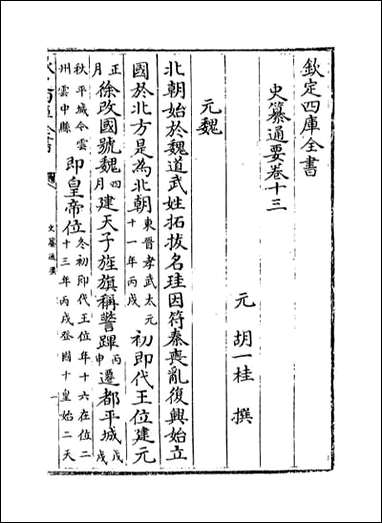 欽定四庫全書
史纂通要卷十三
元 胡一桂 撰
元魏
北朝始於魏道武姓拓拔名珪因符秦喪亂復興始立
國於北方是為北朝東晉孝武太元十一年丙戌初即代王位建元
正月徐改國號魏四月建天子旌旗稱警蹕丙申遷都平城戊戌
秋平城今雲州雲中縣即皇帝位冬初即代王位年十六在位二十三年丙戌登國十皇始二天
史纂通要
一